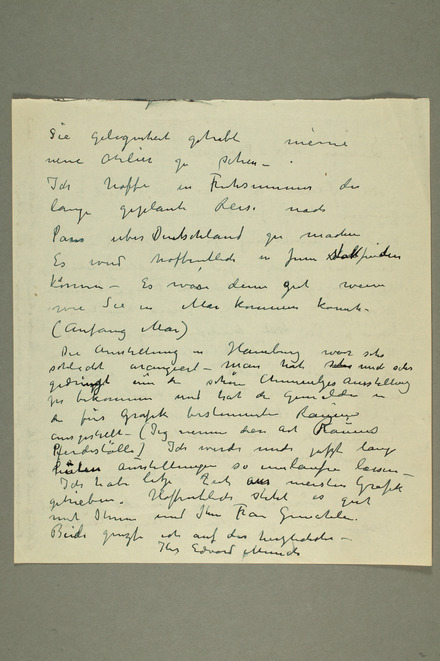 Sie Gelegenheit gehabt meine
neue Atelier zu sehen –
Ich hoffe im Frühsommer die
lange geplante Reise nach
Paris über Deutschland zu machen
Es wird hoffentlich in Juni stattfinden
können – Es wäre denn gut wenn
wie Sie in Mai kommen konnte.
(Anfang Mai)
Die Ausstellung in Hamburg war sehr
schlecht arangiert – man hat mich sehr
gedrängt um die schöne Chemnitzer Ausstellung
zu bekommen und hat die Gemälde in
die für Grafik bestimmten Räume
ausgestellt – (Ich nenne den art Räume
Pferdeställe) Ich werde nicht jetzt lang
hüten ausstellungen so umlaufen lassen –
Ich habe letzte Zeit am meisten Grafik
getrieben. Hoffentlich steht es gut
mit Ihnen und Ihr Frau Gemahlin.
Beide grüsse ich auf das herzlichste –
Ihr Edvard Munch